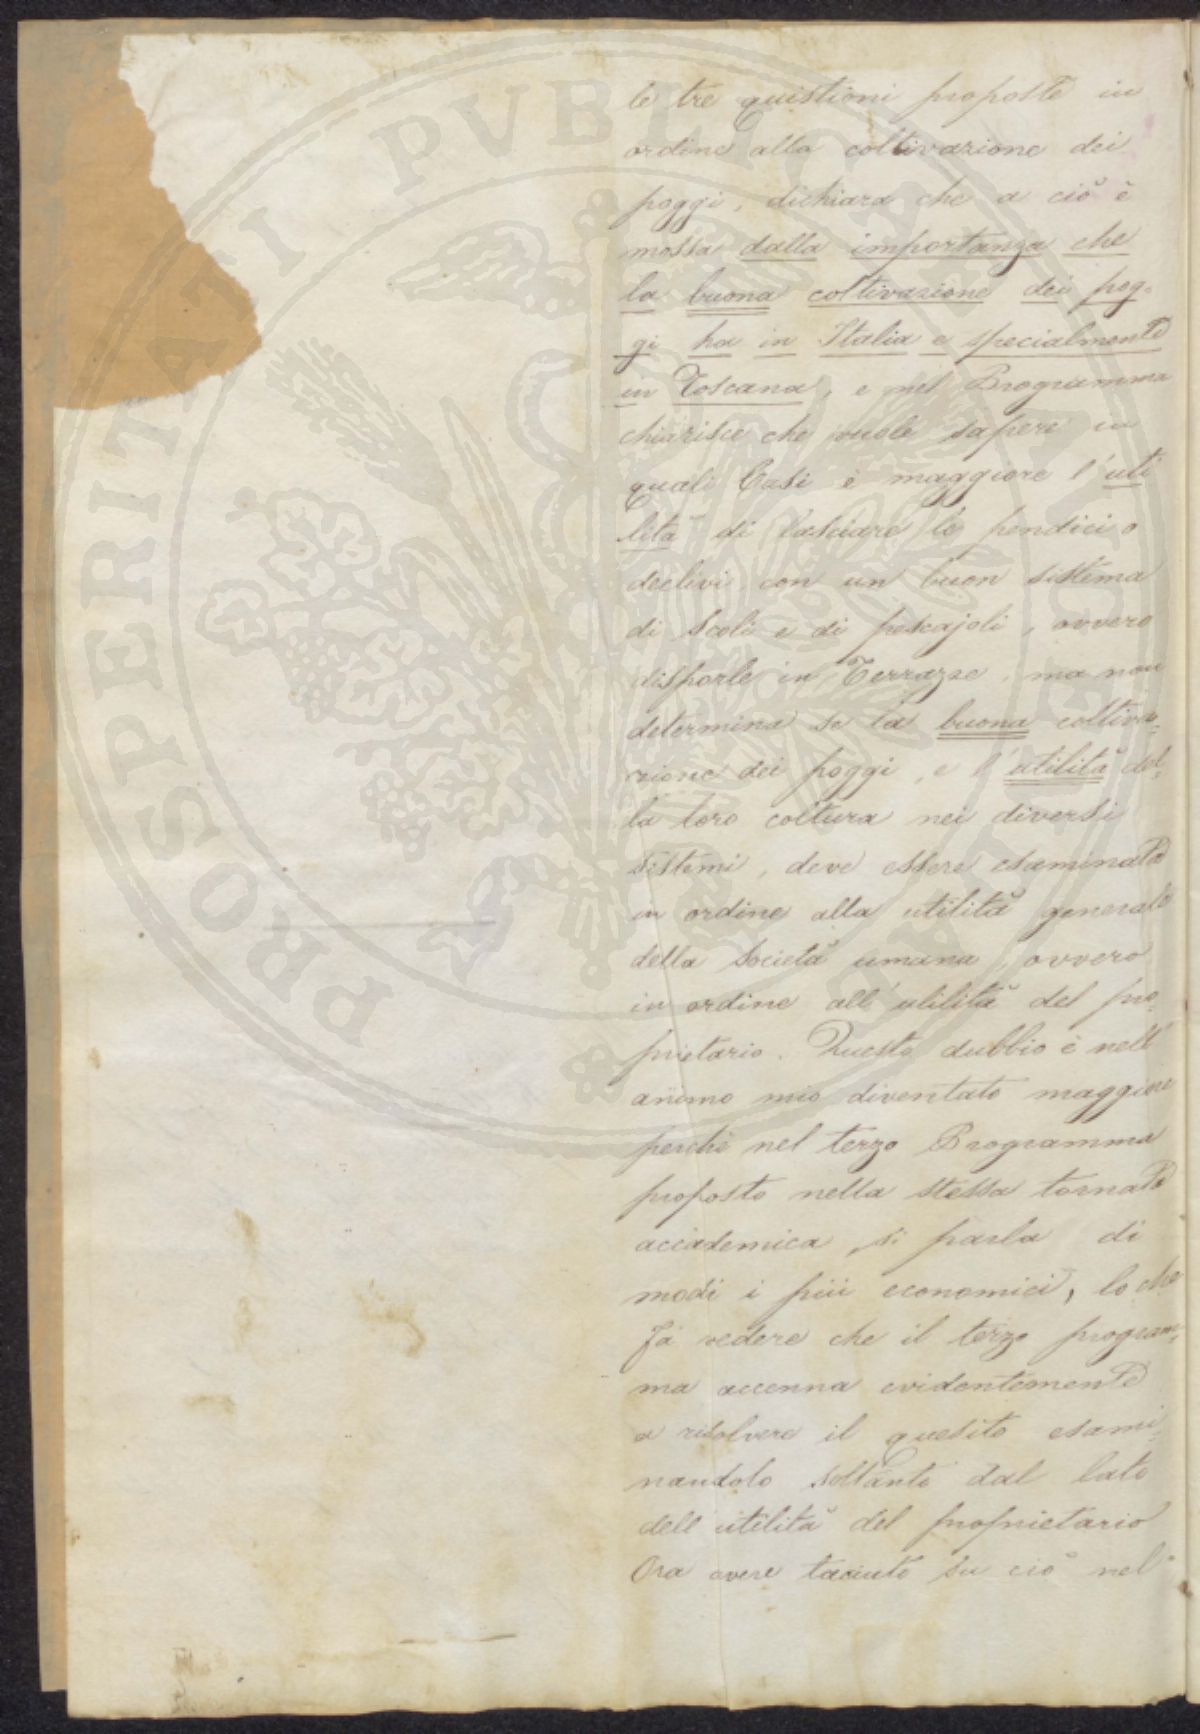 le tre quistioni proposte in
ordine alla coltivazione dei
poggi, dichiara che a ciò è
mossa dalla importanza che
la buona coltivazione dei pog-
gi ha in Italia e specialmente
in Toscana, e nel Programma
chiarisce che vuole sapere in
quali Casi è maggiore l'uti
lità di lasciare le pendici o
declivi con un buon sistema
di scoli e di pescajoli, ovvero
disporle in Terrazze, ma non
determina se la buona coltiva-
zione dei poggi, e l'utilità del-
la loro coltura nei diversi
sistemi, deve essere esaminata
in ordine alla utilità generale
della Società umana, ovvero
in ordine all'utilità del pro-
prietario. Questo dubbio è nell'
animo mio diventato maggiore
perchè nel terzo Programma
proposto nella stessa tornata
accademica, si parla di
modi i più economici, lo che
fà vedere che il terzo program-
ma accenna evidentemente
a risolvere il quesito esami-
nandolo soltanto dal lato
dell'utilità del proprietario
Ora avere taciuto su ciò nel
PROSPERITATI PVBLICAE AVGENDAE